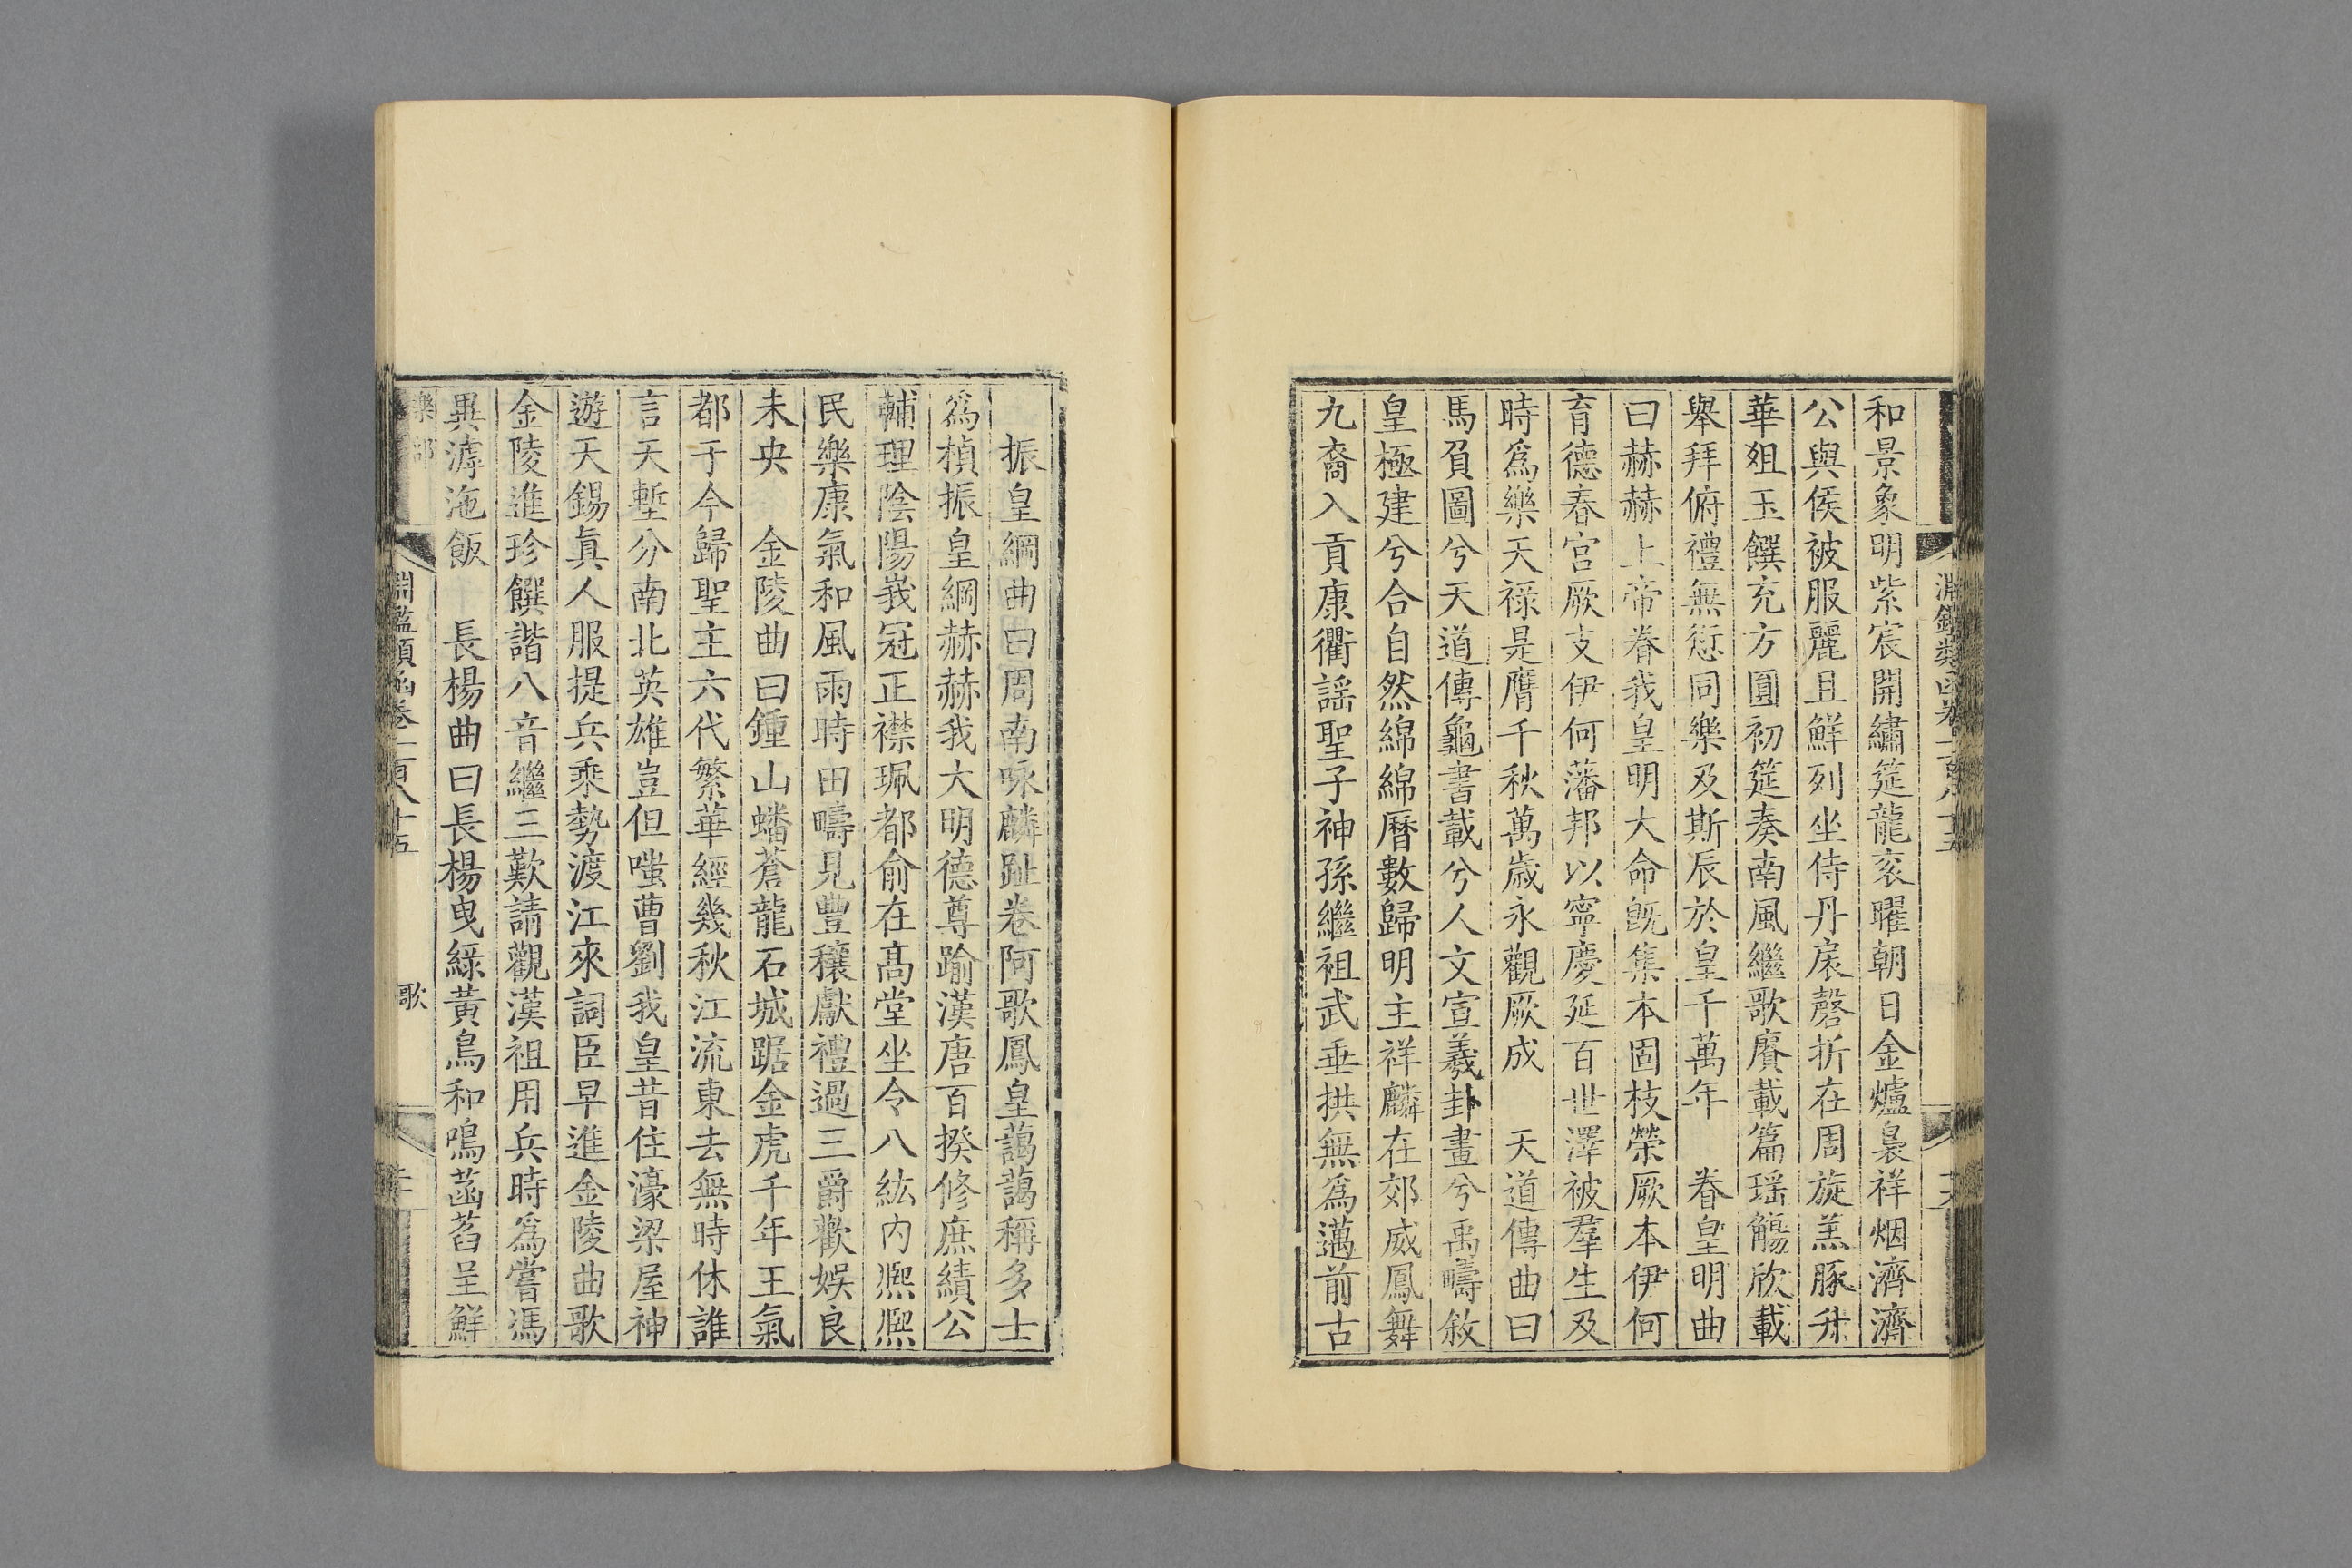 和景象明紫宸開繡筵龍衮曜朝日金爐裊祥烟濟濟
公與侯被服麗且鮮列坐侍丹扆磬折在周旋羔豚升
華俎玉饌充方圓初筵奏南風繼歌賡載篇瑶觴欣載
舉拜俯禮無愆同樂及斯辰於皇千萬年　眷皇明曲
曰赫赫上帝眷我皇明大命旣集本固枝榮厥本伊何
育德春宮厥支伊何藩邦以寧慶延百世澤被羣生及
時爲樂天祿是膺千秋萬歲永觀厥成　天道傳曲曰
馬負圖兮天道傳龜書載兮人文宣羲卦畫兮禹疇敘
皇極建兮合自然綿綿曆數歸明主祥麟在郊威鳳舞
九裔入貢康衢謡聖子神孫繼祖武垂拱無爲邁前古
振皇綱曲曰周南咏麟趾卷阿歌鳳皇藹藹稱多士
爲楨振皇綱赫赫我大明德尊踰漢唐百揆修庶績公
輔理陰陽峩冠正襟珮都俞在高堂坐令八紘内熈熈
民樂康氣和風雨時田疇見豐穰獻禮過三爵歡娛良
未央　金陵曲曰鍾山蟠蒼龍石城踞金虎千年王氣
都于今歸聖主六代繁華經幾秋江流東去無時休誰
言天塹分南北英雄豈但嗤曹劉我皇昔住濠梁屋神
遊天錫眞人服提兵乘勢渡江來詞臣早進金陵曲歌
金陵進珍饌諧八音繼三歎請觀漢祖用兵時爲嘗馮
異滹沲飯　長楊曲曰長楊曳綠黃鳥和鳴菡萏呈鮮
樂部
淵鑑類函卷一百八十五
歌